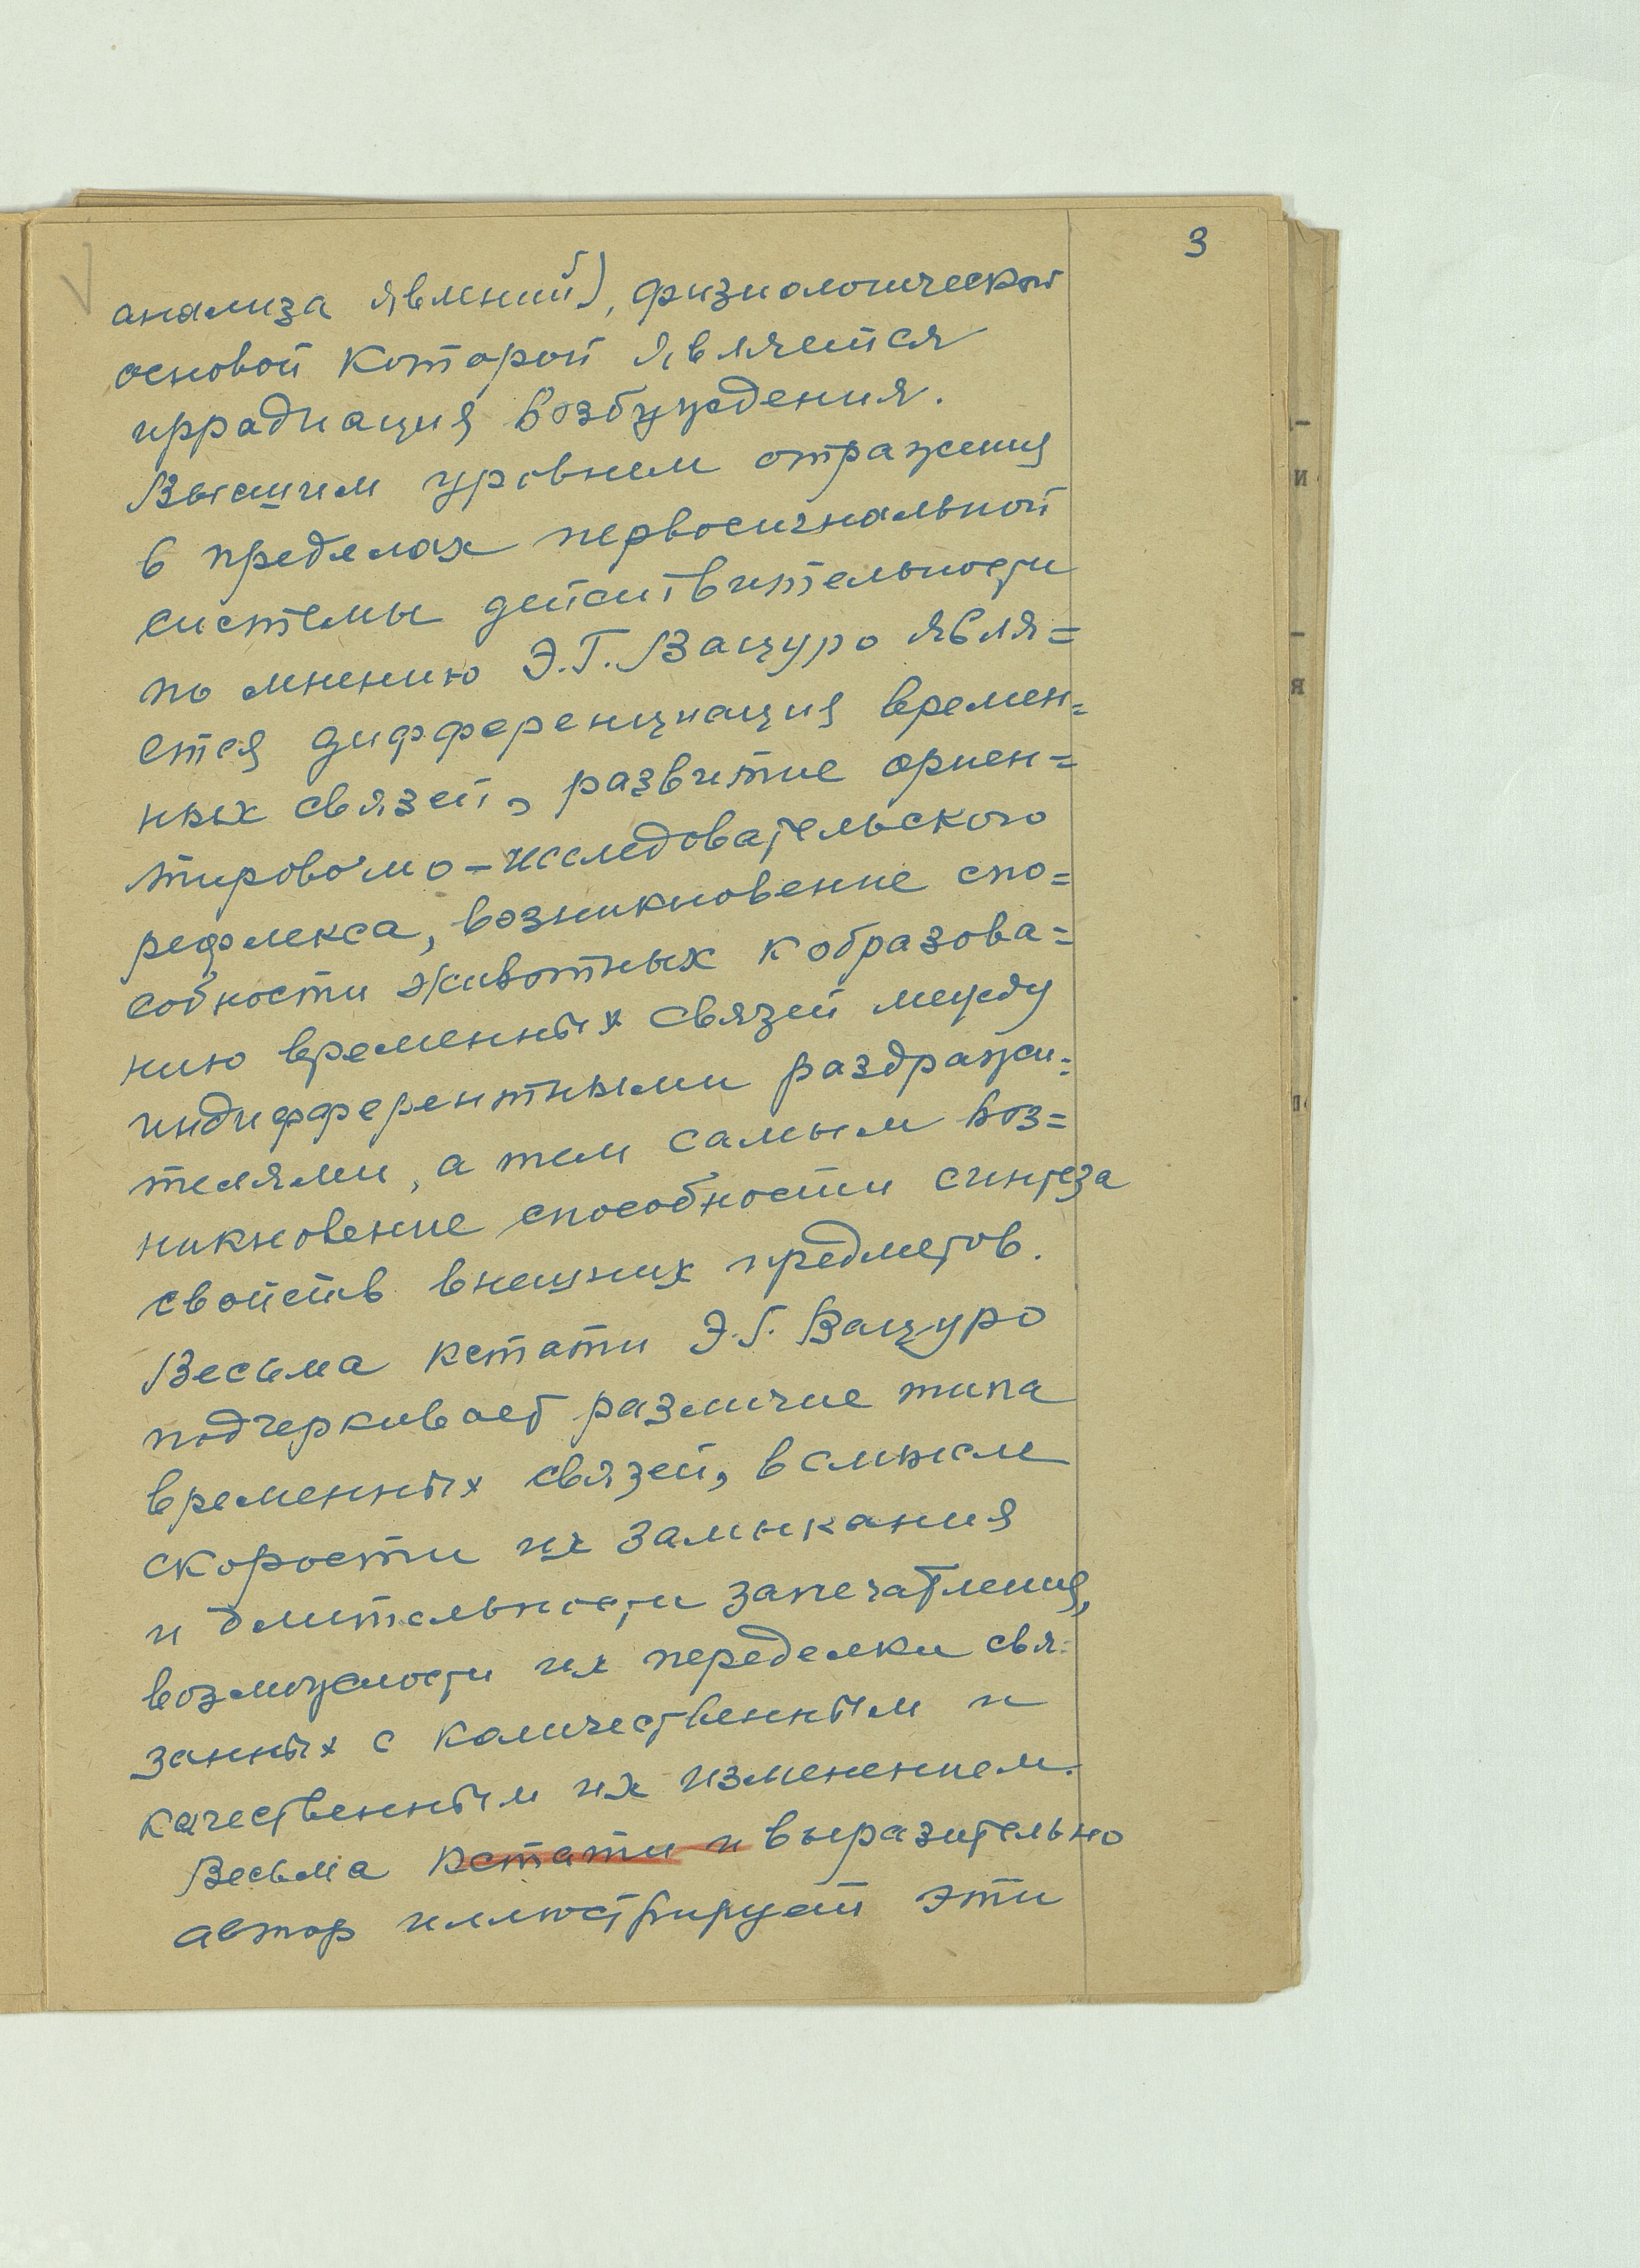 3
анализа явлений), физиологической
основой которой является
иррадиация возбуждения.
Высшим уровнем отражения
в пределах первосигнальной
системы действительности
по мнению Э.Г. Вацуро явля=
ется дифференциация времен=
ных связей, развитие ориен=
тировочно-исследовательского
рефлекса, возникновение спо=
собности животных к образова=
нию временных связей между
индифферентными раздражи=
телями, а тем самым воз=
никновение способности синтеза
свойств внешних предметов.
Весьма кстати Э.Г. Вацуро
подчеркивает различие типа
временных связей, в смысле
скорости их замыкания
и длительности запечатления,
возможности их переделки свя=
занных с количественным и
качественным их изменением.
Весьма кстати и выразительно
автор иллюстрирует эти